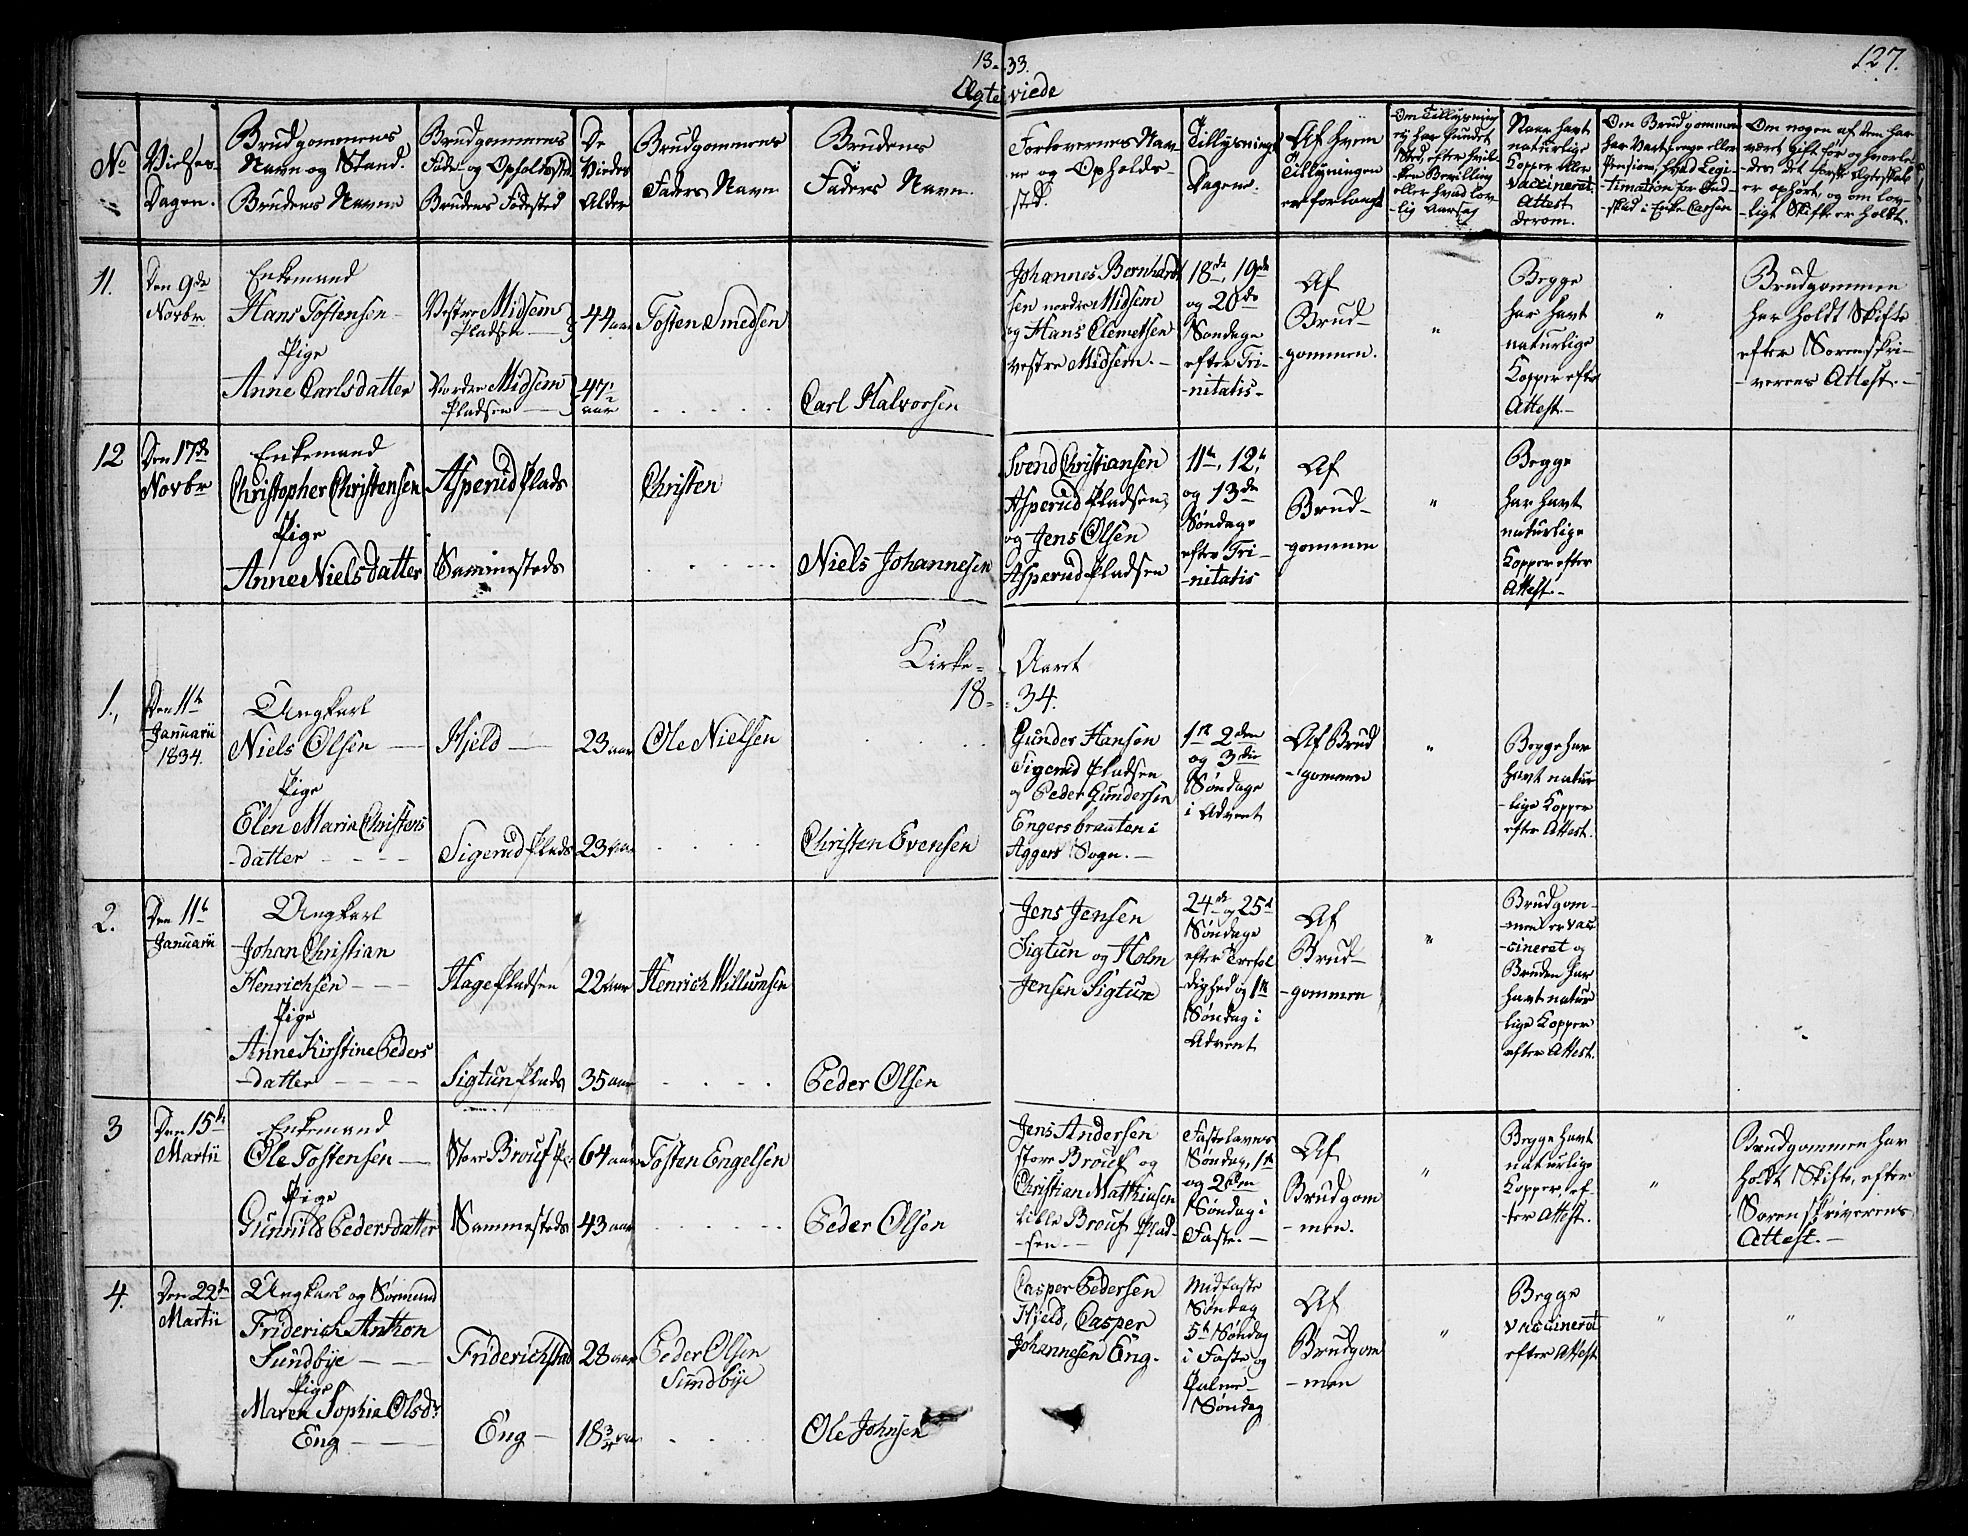 18-33.
127.
Ægteviede
No
Vielses-
Dagen.
Brudgommens
Navn og Stand.
Brudens Navn
Brudgommens
Føde- og Opholdssted
Brudens Fødested
De
Viedes
Alder
Brudgommens
Faders Navn
Brudens
Faders Navn.
Forlovernes Nav-
ne og Opholds-
sted.
Tillysnings
Dagene.
Af hvem
Tillysningen
er forlangt
Om Tillysning
ej har fundet
Sted, efter hvil-
ken Bevilling
eller hvad lov-
lig Aarsag
Naar havt
naturlige
Kopper eller
vaccineret,
Attest
derom.
Om Brudgommen
har Vartpenge eller
Pension, hvad Legi-
timation for Ind-
skud i Enke Cassen
Om nogen af dem har
været gift før og hvorle-
des det første Ægteskab
er ophørt, og om lov-
-ligt Skifte er holdt.
11.
Den 9de
Novbr.
Enkemand
Hans Tostensen
Pige
Anne Carlsdatter
Vestre Midsem
Pladsen
Nordre Midsem
Pladsen
44 aar
47 aar
Tosten Smedsen
Carl Halvorsen
Johannes Bernhardt
sen nordre Midsem
og Hans Clemetsen
vestre Midsem.-
18de, 19de
og 20de
Søndage
efter Tri-
-nitatis-
Af
Brud-
-gommen.
"
Begge
har havt
naturlige
Kopper efter
Attest.-
"
Brudgommen
har holdt Skifte
efter Sorenskri-
-verens Attest.-
12
Den 17de
Novbr
Enkemand
Christopher Christensen
Pige
Anne Nielsdatter
Asperud Plads
Sammesteds
Christen
Niels Johannesen
Svend Christiansen
Asperud Pladsen,
og Jens Olsen
Asperud Pladsen
11te, 12te
og 13de
Søndage
efter Tri-
-nitatis
Af
Brud-
gommen
"
Begge
har havt
naturlige
Kopper efter
Attest.-
Kirke-Aaret
18-34.
1.,
Den 11te
Januarii
1834.
Ungkarl
Niels Olsen
Pige
Elen Maria Christens
-datter
Hjeld
Sigerud Plads
23 aar
23 aar
Ole Nielsen
Christen Evensen
Gunder Hansen
Sigerud Pladsen
og Peder Gundersen
Engersbraaten i
Aggers Sogn.-
1te 2den
og 3die
Søndage
i Advent
Af Brud
-gommen
"
Begge har
havt natur
-lige Kopper
efter Attest.
2.
Den 11te
Januarii
Ungkarl
Johan Christian
Henrichsen
Pige
Anne Kirstine Peders
-datter
Hage Pladsen
Sigtun Plads
22 aar
35 aar
Henrich Willumsen
Peder Olsen
Jens Jensen
Sigtun og Holm
Jensen Sigtun
24de og 25de
Søndage
efter Trefol
-dighed og 1te
Søndag i
Advent
Af
Brud-
-gommen
"
Brudgom-
-men er vac
-cineret og
Bruden har
havt natur
-lige Kopper
efter Attest.
3
Den 15de
Martii
Enkemand
Ole Tostensen
Pige
Gunnild Pedersdatter
Store Brouf Pl.
Sammesteds
64 aar
43 aar
Tosten Engelsen
Peder Olsen
Jens Andersen
store Brouf og
Christian Mathiasen
Lille Brouf Plad-
-sen.-
Fastelavns
Søndag, 1te
og 2den
Søndag i
Faste.-
Af
Brudgom
-men.
"
Begge havt
naturlige
Kopper, ef-
-ter Attest.
"
Brudgommen har
holdt Skifte, efter
Sorenskriverens
Attest.-
4.
Den 22de
Martii
Ungkarl og Sømand
Friderich Anthon
Sundbye
Pige
Maren Sophia Olsdr
Eng
Friderichstad
Eng
28 aar
18 3/4 aar
Peder Olsen
Sundbye
Ole Johnsen
Casper Pedersen
Hjeld, Casper
Johannesen Eng.
Midfaste
Søndag
5te Søndag
i Faste og
Palme-
Søndag
Af
Brudgom
-men
"
Begge
vaccineret
efter Attest
"
"